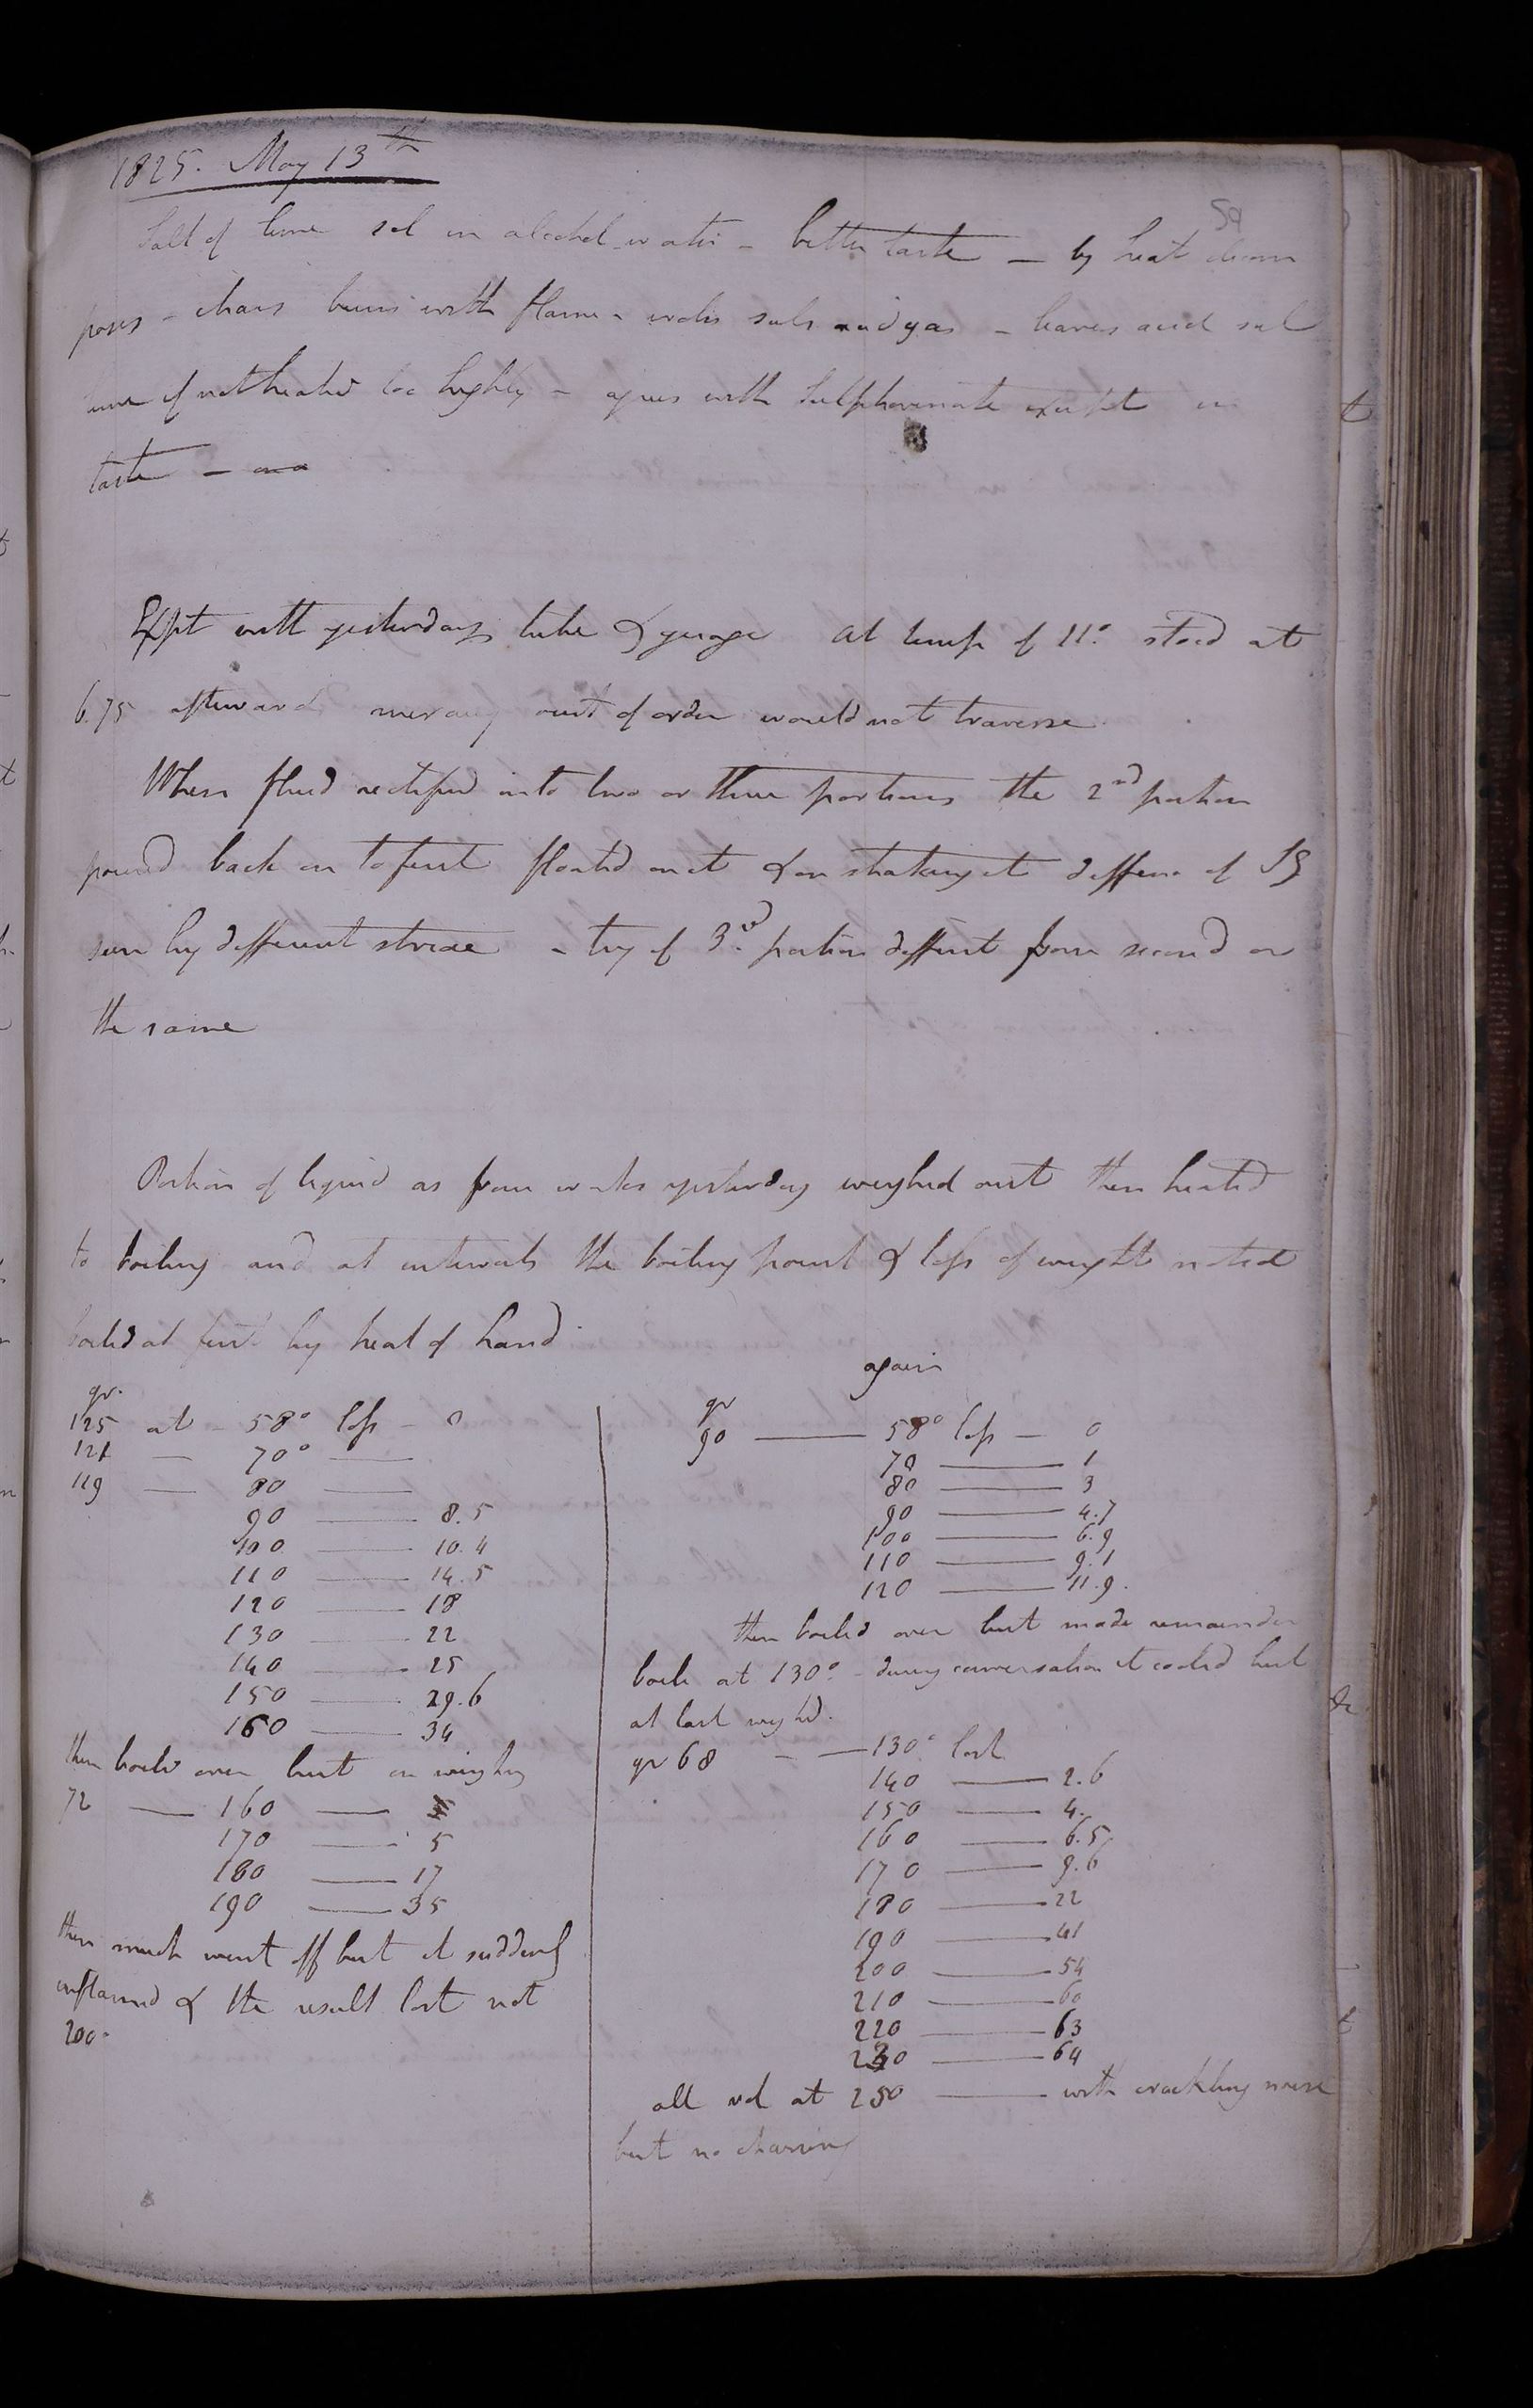 1825. May 13th
59
Salt of lime sol in alcohol water - bitter taste - by heat decom
poses - chars burns with flame - evolves sul acid gas - leaves acid sul
lime if not heated too highly - agrees with Sulphovinate except in
taste - and
Expt with yesterdays tube & guage At temp of 11° stood at
6.75 afterward mercury out of order would not traverse
When fluid rectified into two or three portions the 2nd portion
poured back on to first floated on it & on shaking it differe of SG
seen by different striae - try if 3rd portion differt from second or
the same
Portion of liquid as from works yesterday weighed out then heated
to boiling and at intervals the boiling point & loss of weight noted
boiled at first by heat of hand
gr.
125 at - 58° loss - 0
121 — 70° —
119 — 80 —
90 — 8.5
100 — 10.4
110 — 14.5
120 — 18
130 — 22
140 — 25
150 — 29.6
160 — 34
then boiled over but on weighing
72 — 160 —
170 — 5
180 — 17
190 — 35
then much went off but it suddenly
inflamed & the result lost not
200°
again
gr
90 — 58° loss — 0
70 — 1
80 — 3
90 — 4.7
100 — 6.9
110 — 9.1
120 — 11.9.
then boiled over but made remainder
boil at 130° - during conversation it cooled but
at last weighd.
gr 68 - — 130° lost
140 — 2.6
150 — 4.
160 — 6.5
170 — 9.6
180 — 22
190 — 41
200 — 54
210 — 60
220 — 63
230 — 64
all vol at 250 — with crackling noise
but no charring